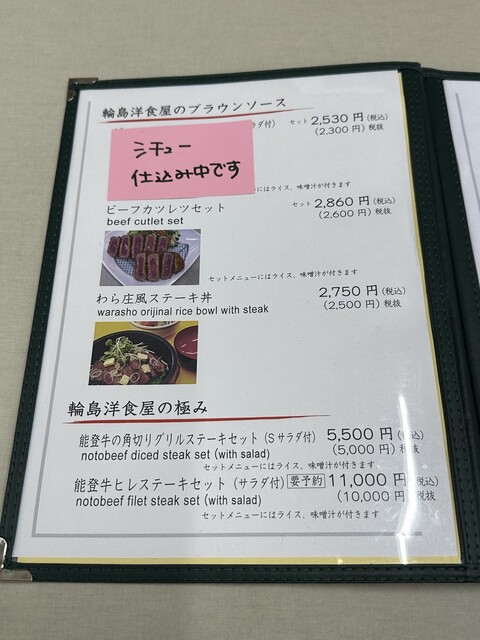 輪島洋食屋のブラウンソース
ラダ付) セット 2,530 円 (税込)
(2,300 円) 税抜
シチュー
仕込み中です
にはライス、味噌汁が付きます
ビーフカツレツセット セット 2,860 円 (税込)
beef cutlet set (2,600 円) 税抜
セットメニューにはライス、味噌汁が付きます
わら庄風ステーキ丼 2,750 円 (税込)
warasho orijinal rice bowl with steak (2,500 円) 税抜
輪島洋食屋の極み
能登牛の角切りグリルステーキセット (S サラダ付) 5,500 円 (税込)
notobeef diced steak set (with salad) (5,000 円) 税抜
セットメニューにはライス、味噌汁が付きます
能登牛ヒレステーキセット (サラダ付) 要予約 11,000 円 (税込)
notobeef filet steak set (with salad) (10,000 円) 税抜
セットメニューにはライス、味噌汁が付きます